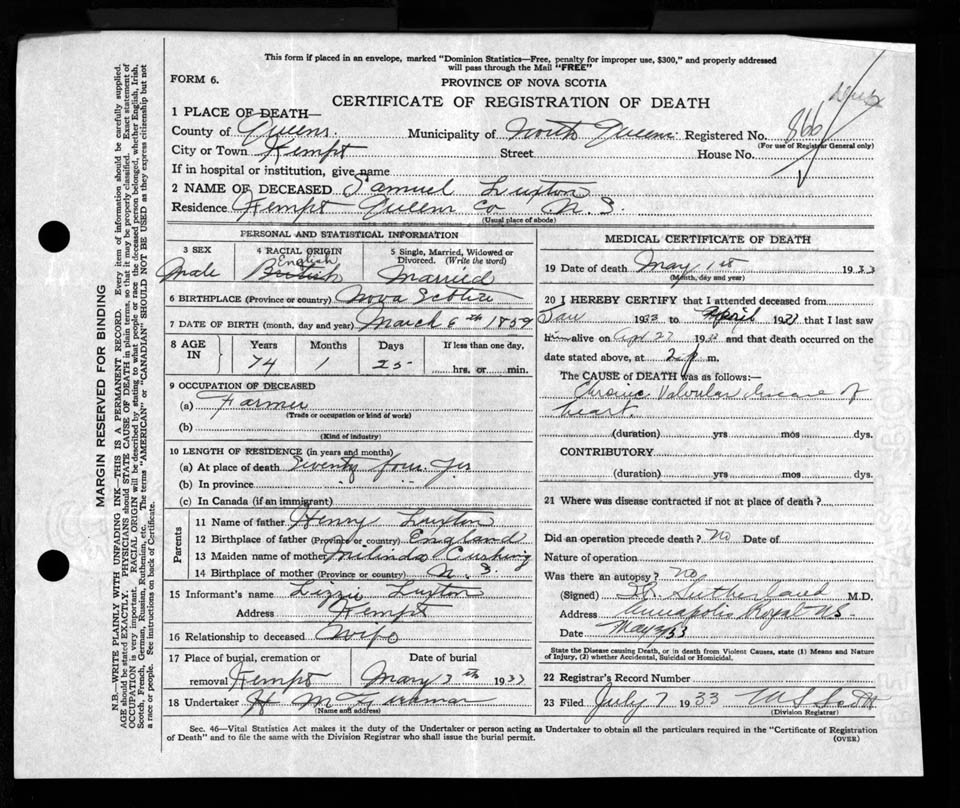 This form if placed in an envelope, marked "Dominion Statistics—Free, penalty for improper use, $300," and properly addressed
will pass through the Mail "FREE"
FORM 6.
PROVINCE OF NOVA SCOTIA
CERTIFICATE OF REGISTRATION OF DEATH
1 PLACE OF DEATH—
County of Queens. Municipality of North Queens. Registered No. 866
(For use of Registrar General only)
City or Town Kempt Street House No.
If in hospital or institution, give name
2 NAME OF DECEASED Samuel Luxton
Residence Kempt Queens Co N.S.
(Usual place of abode)
PERSONAL AND STATISTICAL INFORMATION
3 SEX 4 RACIAL ORIGIN 5 Single, Married, Widowed or
Divorced. (Write the word)
English
Male British Married
6 BIRTHPLACE (Province or country) Nova Scotia
7 DATE OF BIRTH (month, day and year) March 6th 1859
8 AGE IN Years Months Days If less than one day,
74 1 25 hrs. or min.
9 OCCUPATION OF DECEASED
(a) Farmer
(Trade or occupation or kind of work)
(b)
(Kind of industry)
10 LENGTH OF RESIDENCE (in years and months)
(a) At place of death Seventy four yrs
(b) In province " " "
(c) In Canada (if an immigrant)
Parents
11 Name of father Henry Luxton
12 Birthplace of father (Province or country) England
13 Maiden name of mother Milinda Cushing
14 Birthplace of mother (Province or country) N.S.
15 Informant's name Lizzie Luxton
Address Kempt
16 Relationship to deceased Wife
17 Place of burial, cremation or Date of burial
removal Kempt May 3th 1933
18 Undertaker H M
(Name and address)
MEDICAL CERTIFICATE OF DEATH
19 Date of death May 1st 1933
(Month, day and year)
20 I HEREBY CERTIFY that I attended deceased from
Jan 1933 to April 1933 that I last saw
him alive on Apr 27 1933 and that death occurred on the
date stated above, at 2 p m.
The CAUSE of DEATH was as follows:—
Chronic Valvular disease of
heart.
(duration) yrs mos dys.
CONTRIBUTORY
(duration) yrs mos dys.
21 Where was disease contracted if not at place of death?
Did an operation precede death? No Date of
Nature of operation
Was there an autopsy? No
(Signed) Sutherland M.D.
Address Annapolis Royal N.S.
Date May 3/33
State the Disease causing Death, or in death from Violent Causes, state (1) Means and Nature
of Injury, (2) whether Accidental, Suicidal or Homicidal.
22 Registrar's Record Number
23 Filed July 7 1933
(Division Registrar)
Sec. 46—Vital Statistics Act makes it the duty of the Undertaker or person acting as Undertaker to obtain all the particulars required in the "Certificate of Registration
of Death" and to file the same with the Division Registrar who shall issue the burial permit.
(OVER)
MARGIN RESERVED FOR BINDING
N.B.—WRITE PLAINLY WITH UNFADING INK—THIS IS A PERMANENT RECORD. Every item of information should be carefully supplied.
AGE should be stated EXACTLY. PHYSICIANS should STATE CAUSE OF DEATH in plain terms, so that it may be properly classified. Exact statement of
OCCUPATION is very important. RACIAL ORIGIN will be described by stating to what people or race the deceased person belonged, whether English, Irish,
Scotch, French, German, Russian, Ruthenian, etc. The terms "AMERICAN" or "CANADIAN" SHOULD NOT BE USED as they express citizenship but not
a race or people. See instructions on back of Certificate.